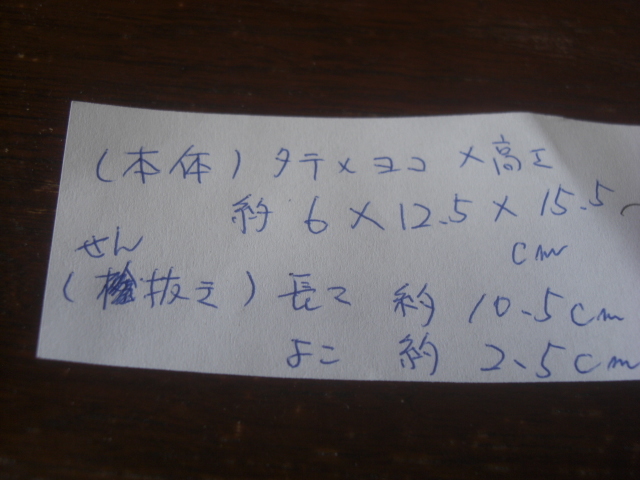 (本体) タテ×ヨコ×高さ
約 6×12.5×15.5
cm
せん
(栓抜き) 長さ 約 10.5cm
よこ 約 2.5cm